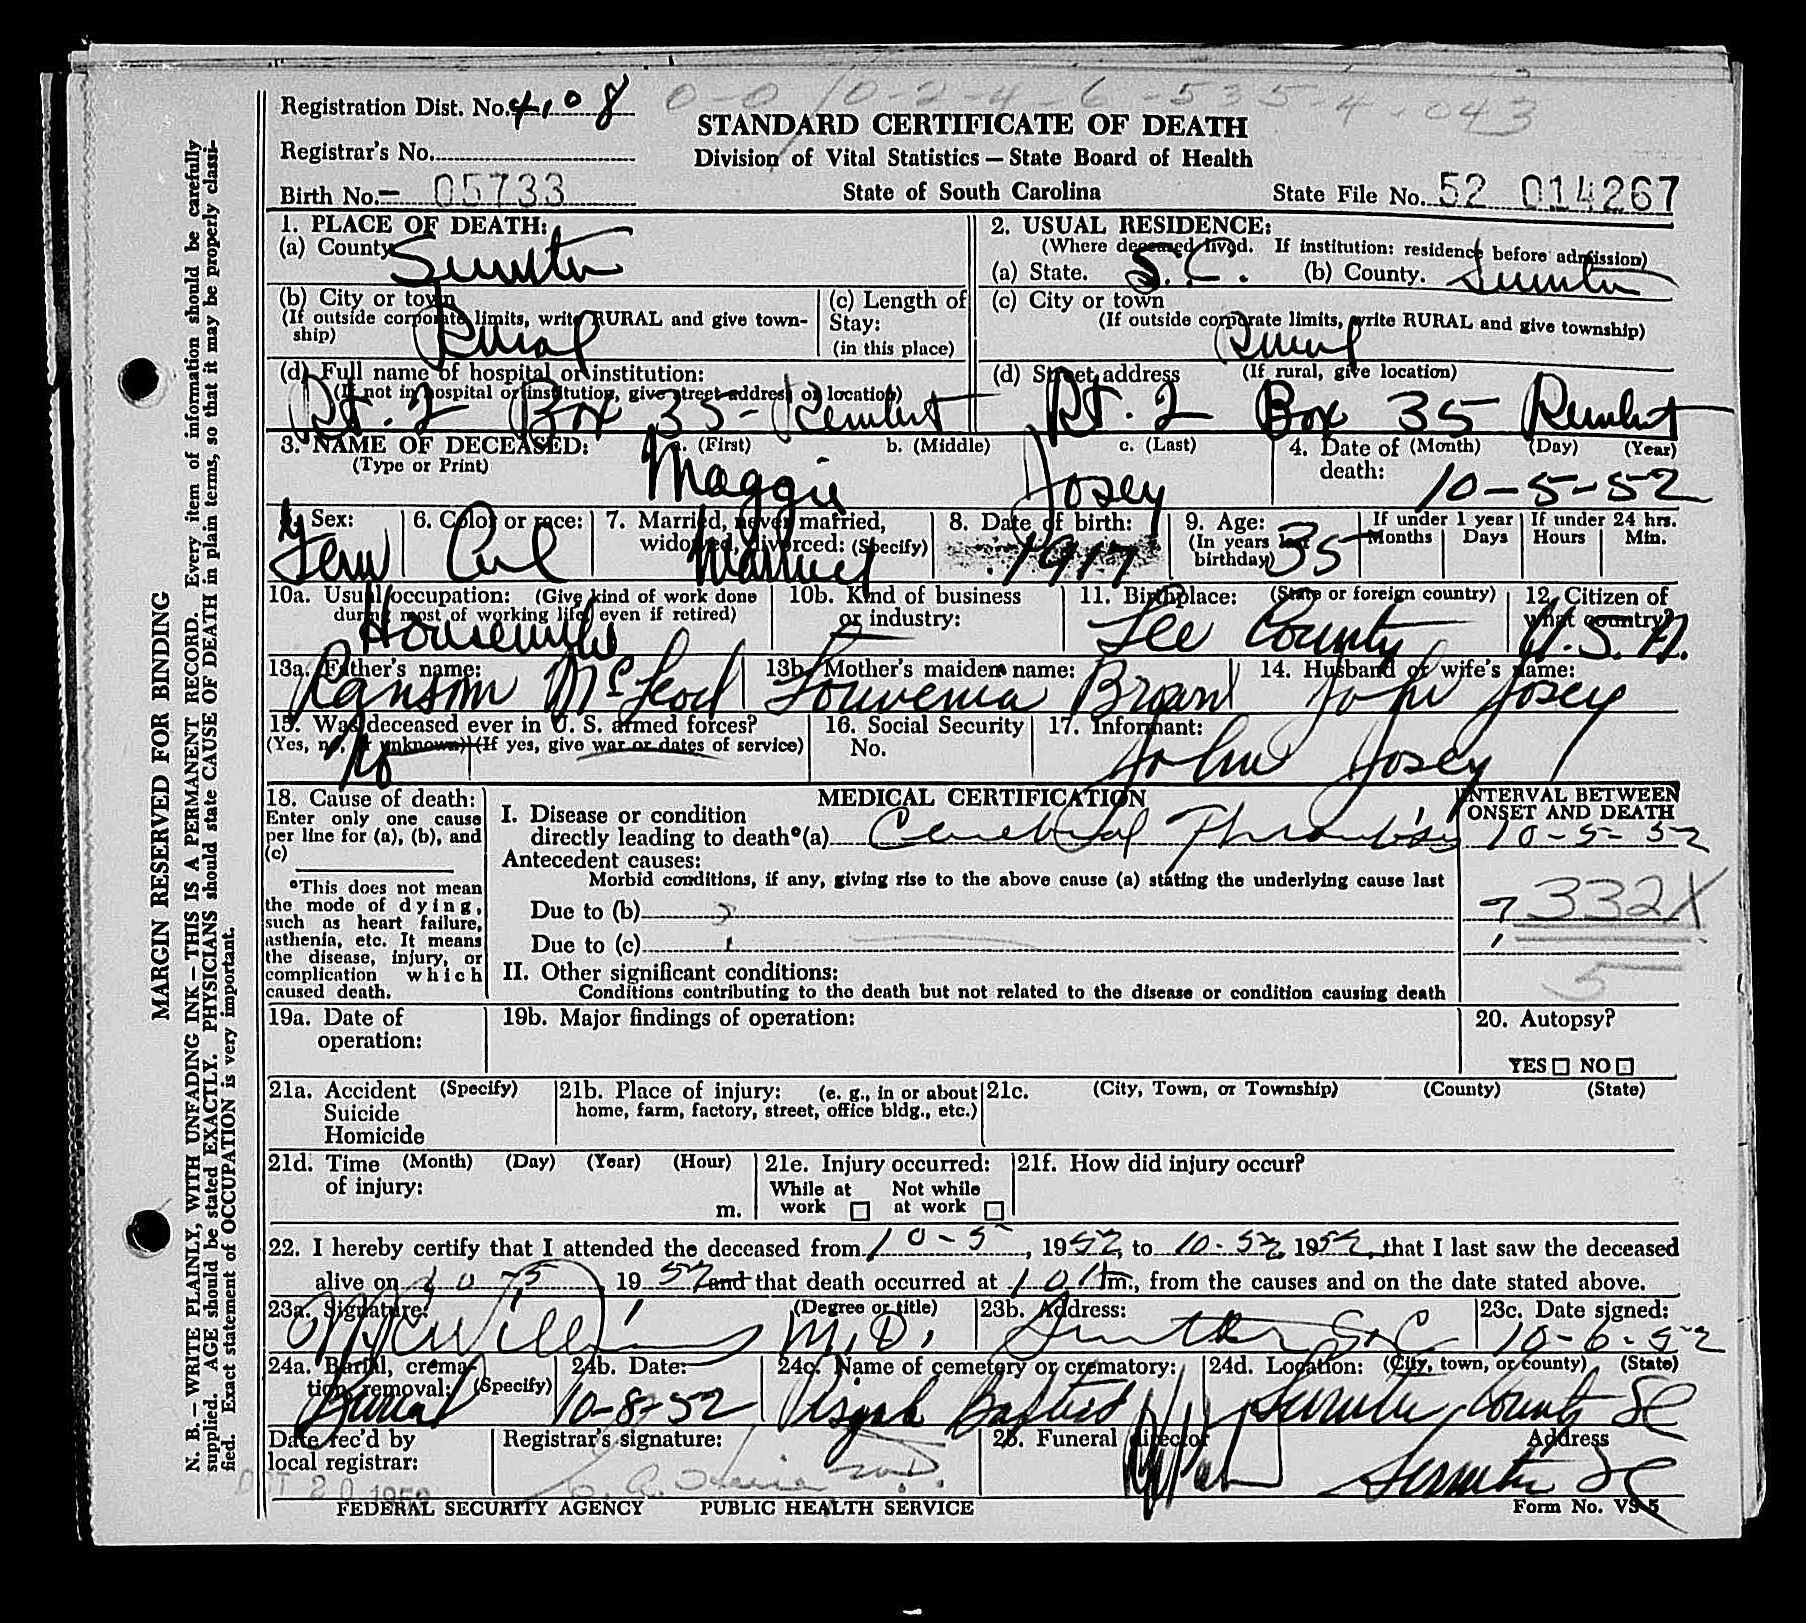 Registration Dist. No. 4108 0-0 10-2-4-6-535-4-043
STANDARD CERTIFICATE OF DEATH
Registrar's No.
Division of Vital Statistics — State Board of Health
Birth No. — 05733 State of South Carolina State File No. 52 014267
1. PLACE OF DEATH:
(a) County Sumter
2. USUAL RESIDENCE:
(Where deceased lived. If institution: residence before admission)
(a) State. S.C. (b) County. Sumter
(b) City or town
(If outside corporate limits, write RURAL and give township)
Rural
(c) Length of Stay:
(in this place)
(c) City or town
(If outside corporate limits, write RURAL and give township)
Rural
(d) Full name of hospital or institution:
(If not in hospital or institution, give street address or location)
Rt. 2 Box 35 - Rembert
(d) Street address (If rural, give location)
Rt. 2 Box 35 Rembert
3. NAME OF DECEASED: a. (First) b. (Middle) c. (Last)
(Type or Print)
Maggie Josey
4. Date of death: (Month) (Day) (Year)
10-5-52
5. Sex: Fem
6. Color or race: Col
7. Married, never married, widowed, divorced: (Specify)
Married
8. Date of birth: 1917
9. Age: (In years last birthday) 35
If under 1 year Months Days
If under 24 hrs. Hours Min.
10a. Usual occupation: (Give kind of work done during most of working life, even if retired)
Housewife
10b. Kind of business or industry:
11. Birthplace: (State or foreign country)
Lee County
12. Citizen of what country?
U.S.A.
13a. Father's name: Ransom McLeod
13b. Mother's maiden name: Louvenia Brown
14. Husband or wife's name: John Josey
15. Was deceased ever in U. S. armed forces?
(Yes, no, or unknown) (If yes, give war or dates of service)
No
16. Social Security No.
17. Informant: John Josey
18. Cause of death:
Enter only one cause per line for (a), (b), and (c)
*This does not mean the mode of dying, such as heart failure, asthenia, etc. It means the disease, injury, or complication which caused death.
MEDICAL CERTIFICATION
INTERVAL BETWEEN ONSET AND DEATH
I. Disease or condition
directly leading to death*(a) Cerebral Thrombosis 10-5-52
Antecedent causes:
Morbid conditions, if any, giving rise to the above cause (a) stating the underlying cause last
Due to (b) ? ? 332X
Due to (c)
5
II. Other significant conditions:
Conditions contributing to the death but not related to the disease or condition causing death
19a. Date of operation:
19b. Major findings of operation:
20. Autopsy?
YES NO
21a. Accident (Specify)
Suicide
Homicide
21b. Place of injury: (e. g., in or about home, farm, factory, street, office bldg., etc.)
21c. (City, Town, or Township) (County) (State)
21d. Time (Month) (Day) (Year) (Hour)
of injury: m.
21e. Injury occurred:
While at work Not while at work
21f. How did injury occur?
22. I hereby certify that I attended the deceased from 10-5, 1952, to 10-5, 1952, that I last saw the deceased
alive on 10-5, 1952 and that death occurred at m., from the causes and on the date stated above.
23a. Signature: (Degree or title) M.D.
23b. Address: Sumter S.C.
23c. Date signed: 10-6-52
24a. Burial, cremation, removal: (Specify)
Burial
24b. Date: 10-8-52
24c. Name of cemetery or crematory:
Pisgah Baptist
24d. Location: (City, town, or county) (State)
Sumter County SC
Date rec'd by local registrar:
OCT 20 1952
Registrar's signature:
25. Funeral director Address
Sumter SC
FEDERAL SECURITY AGENCY PUBLIC HEALTH SERVICE Form No. VS-5
MARGIN RESERVED FOR BINDING
N. B. — WRITE PLAINLY, WITH UNFADING INK — THIS IS A PERMANENT RECORD. Every item of information should be carefully
supplied. AGE should be stated EXACTLY. PHYSICIANS should state CAUSE OF DEATH in plain terms, so that it may be properly classi-
fied. Exact statement of OCCUPATION is very important.